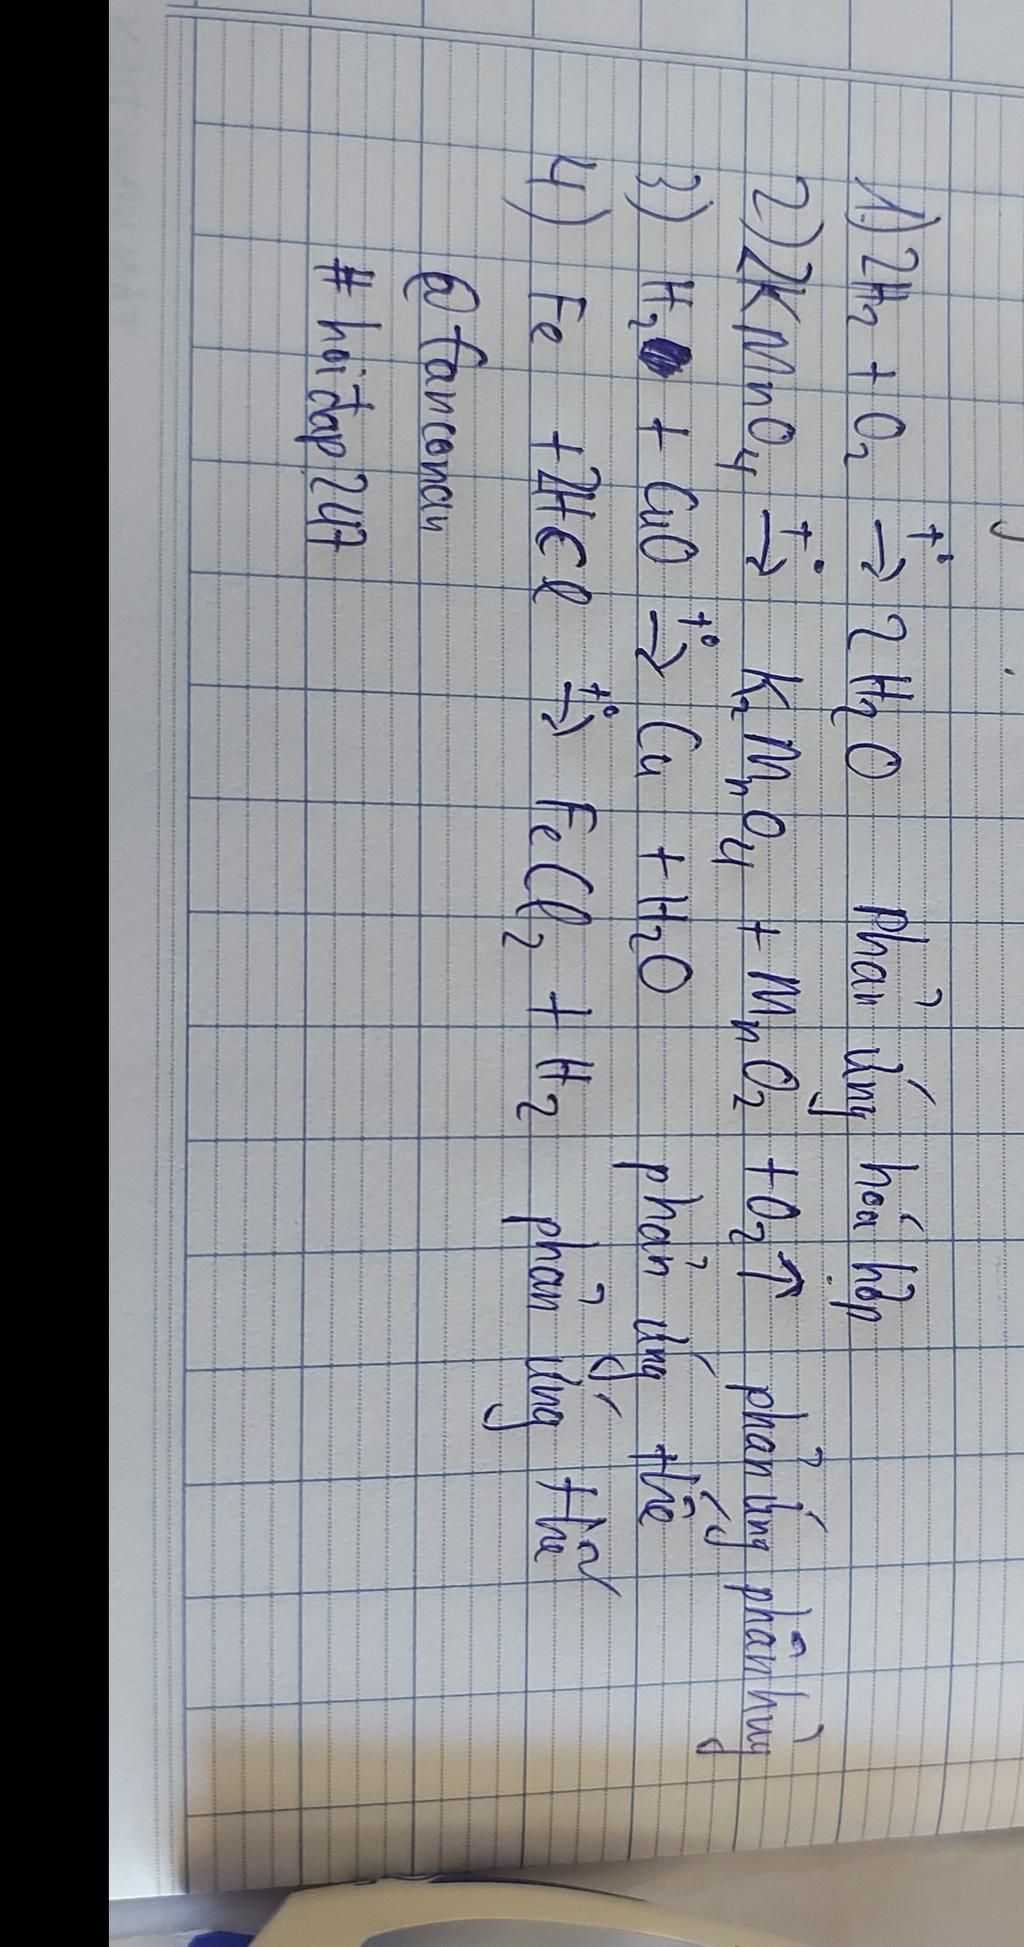 1) 2H₂ + O₂ t°→ 2H₂O phản ứng hóa hợp
2) 2KMnO₄ t°→ K₂MnO₄ + MnO₂ + O₂↑ phản ứng phân hủy
3) H₂ + CuO t°→ Cu + H₂O phản ứng thế
4) Fe + 2HCl t°→ FeCl₂ + H₂ phản ứng thế
@tanconan
#hoidap247